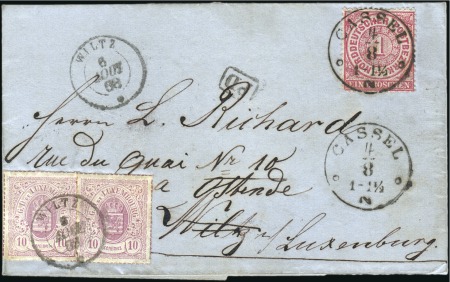 CASSEL
4
8
1-1½
NORDDEUTSCHER
1
EIN GROSCHEN
WILTZ
6
AOUT
68
PD
Herrn L. Richard
rue du Quai Nr 10
a Ostende
Wiltz s/ Luxenburg.
CASSEL
4
8
1-1½
10 10 10 10
WILTZ